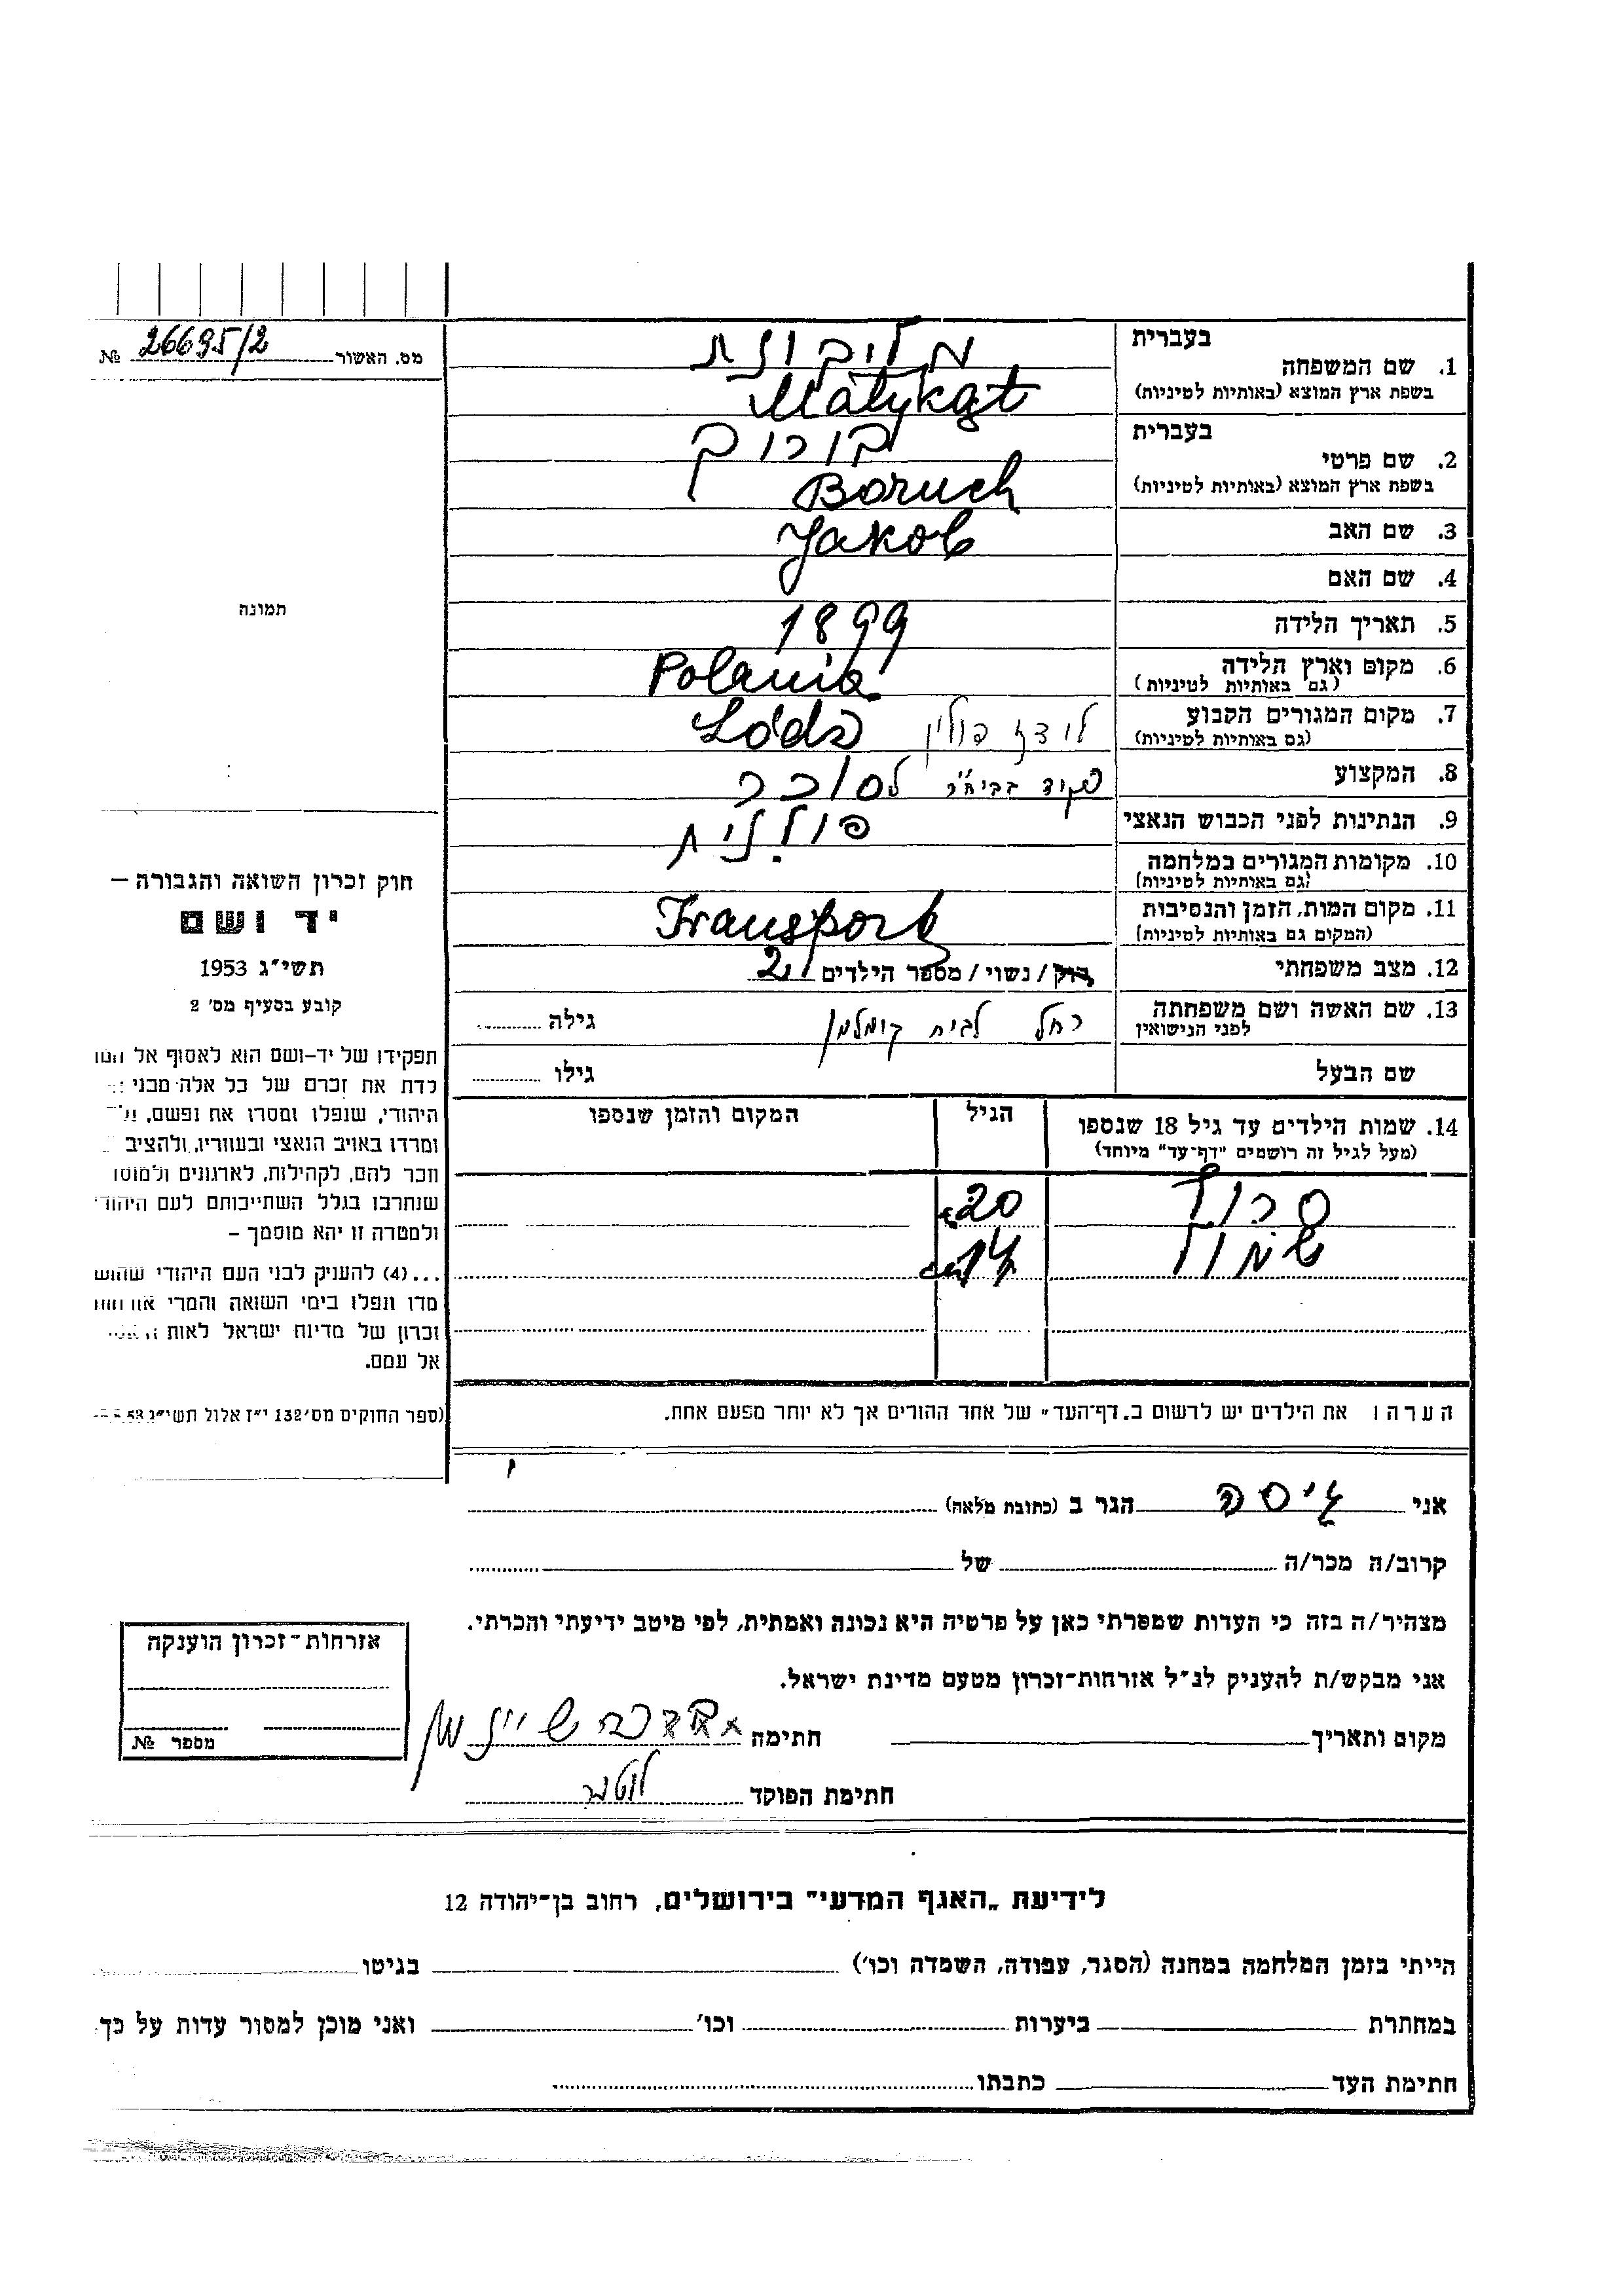 בעברית
1. שם המשפחה
בשפת ארץ המוצא (באותיות לטיניות)
בעברית
2. שם פרטי ברוך
בשפת ארץ המוצא (באותיות לטיניות) Boruch
3. שם האב Jakob
4. שם האם
5. תאריך הלידה 1899
6. מקום וארץ הלידה Polania
(גם באותיות לטיניות)
7. מקום המגורים הקבוע לודז פולין
(גם באותיות לטיניות)
8. המקצוע
9. הנתינות לפני הכבוש הנאצי פולנית
10. מקומות המגורים במלחמה
(גם באותיות לטיניות)
11. מקום המות, הזמן והנסיבות Transport
(המקום גם באותיות לטיניות)
12. מצב משפחתי רוק / נשוי / מספר הילדים 2
13. שם האשה ושם משפחתה רחל לבית גילה
לפני הנישואין
שם הבעל גילו
14. שמות הילדים עד גיל 18 שנספו הגיל המקום והזמן שנספו
(מעל לגיל זה רושמים "דף-עד" מיוחד)
20
14
הערה: את הילדים יש לרשום ב„דף-העד" של אחד ההורים אך לא יותר מפעם אחת.
מס. האשור 26695/2 №
תמונה
חוק זכרון השואה והגבורה –
יד ושם
תשי"ג 1953
קובע בסעיף מס' 2
תפקידו של יד-ושם הוא לאסוף אל
לדת את זכרם של כל אלה מבני
היהודי, שנפלו ומסרו את נפשם,
ומרדו באויב הנאצי ובעוזריו, ולהציב
וזכר להם, לקהילות, לארגונים
שנחרבו בגלל השתייכותם לעם
ולמטרה זו יהא מוסמך –
...(4) להעניק לבני העם היהודי
מדו ונפלו בימי השואה והמרי
זכרון של מדינת ישראל לאות
אל עמם.
(ספר החוקים מס' 132 י"ז אלול תשי"ג
אני גיסה הגר ב (כתובת מלאה)
קרוב/ה מכר/ה של
מצהיר/ה בזה כי העדות שמסרתי כאן על פרטיה היא נכונה ואמתית, לפי מיטב ידיעתי והכרתי.
אני מבקש/ת להעניק לנ"ל אזרחות-זכרון מטעם מדינת ישראל.
מקום ותאריך חתימה
חתימת הפוקד
אזרחות-זכרון הוענקה
מספר №
לידיעת „האגף המדעי" בירושלים, רחוב בן-יהודה 12
הייתי בזמן המלחמה במחנה (הסגר, עבודה, השמדה וכו') בגיטו
במחתרת ביערות וכו' ואני מוכן למסור עדות על כך.
חתימת העד כתבתו